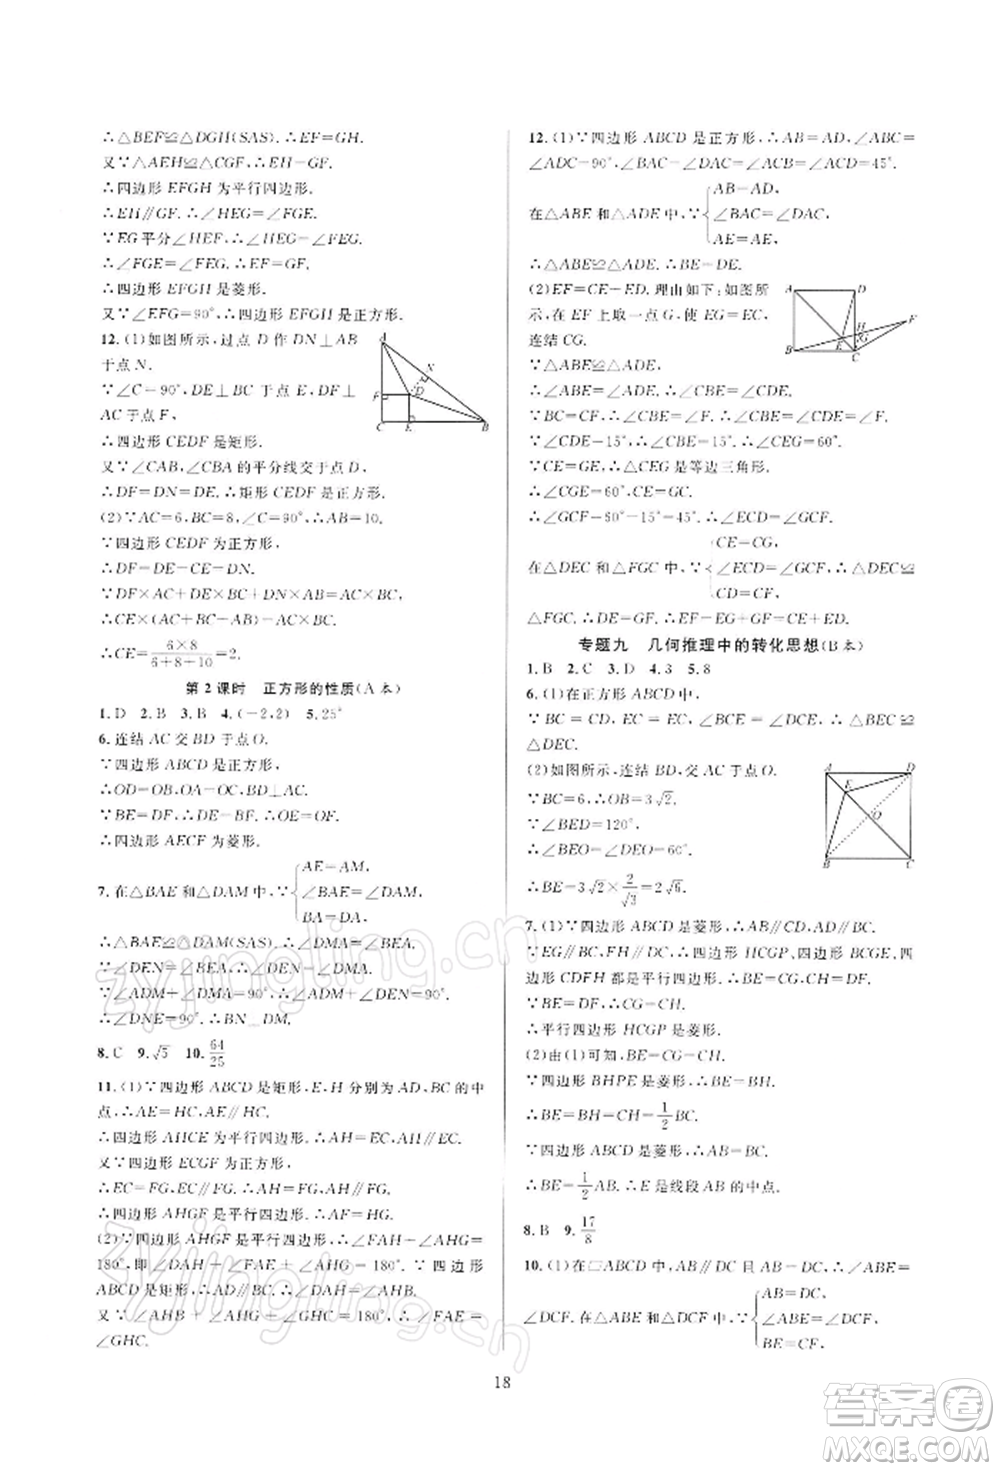 ∴△BEF≌△DGH(SAS). ∴EF=GH.
又∵△AEH≌△CGF, ∴EH=GF.
∴四边形 EFGH 为平行四边形.
∴EH∥GF. ∴∠HEG=∠FGE.
∵EG平分∠HEF, ∴∠HEG=∠FEG.
∴∠FGE=∠FEG. ∴EF=GF.
∴四边形 EFGH 是菱形.
又∵∠EFG=90°, ∴四边形 EFGH 是正方形.
12. (1)如图所示, 过点 D 作 DN⊥AB
于点 N.
∵∠C=90°, DE⊥BC 于点 E, DF⊥
AC 于点 F,
∴四边形 CEDF 是矩形.
又∵∠CAB, ∠CBA 的平分线交于点 D,
∴DF=DN=DE. ∴矩形 CEDF 是正方形.
(2)∵AC=6, BC=8, ∠C=90°, ∴AB=10.
∵四边形 CEDF 为正方形,
∴DF=DE=CE=DN.
∵DF×AC+DE×BC+DN×AB=AC×BC,
∴CE(AC+BC+AB)=AC×BC.
∴CE=6×8/(6+8+10)=2.
第 2 课时 正方形的性质(A 本)
1. D 2. B 3. B 4. (-2,2) 5. 25°
6. 连结 AC 交 BD 于点 O.
∵四边形 ABCD 是正方形,
∴OD=OB, OA=OC, BD⊥AC.
∵BE=DF, ∴DE=BF. ∴OE=OF.
∴四边形 AECF 为菱形.
7. 在△BAE 和△DAM 中, ∵{AE=AM, ∠BAE=∠DAM, BA=DA,
∴△BAE≌△DAM(SAS). ∴∠DMA=∠BEA.
∵∠DEN=∠BEA, ∴∠DEN=∠DMA.
∵∠ADM+∠DMA=90°, ∴∠ADM+∠DEN=90°.
∴∠DNE=90°. ∴BN⊥DM.
8. C 9. √5 10. 64/25
11. (1)∵四边形 ABCD 是矩形, E, H 分别为 AD, BC 的中
点, ∴AE=HC, AE∥HC.
∴四边形 AHCE 为平行四边形. ∴AH=EC, AH∥EC.
又∵四边形 ECGF 为正方形,
∴EC=FG, EC∥FG. ∴AH=FG, AH∥FG.
∴四边形 AHGF 是平行四边形. ∴AF=HG.
(2)∵四边形 AHGF 是平行四边形, ∴∠FAH+∠AHG=
180°, 即∠DAH+∠FAE+∠AHG=180°. ∵四边形
ABCD 是矩形, ∴AD∥BC. ∴∠DAH=∠AHB.
又∵∠AHB+∠AHG+∠GHC=180°, ∴∠FAE=
∠GHC.
12. (1)∵四边形 ABCD 是正方形, ∴AB=AD, ∠ABC=
∠ADC=90°, ∠BAC=∠DAC=∠ACB=∠ACD=45°.
在△ABE 和△ADE 中, ∵{AB=AD, ∠BAC=∠DAC, AE=AE,
∴△ABE≌△ADE. ∴BE=DE.
(2)EF=CE+ED. 理由如下: 如图所
示, 在 EF 上取一点 G, 使 EG=EC,
连结 CG.
∵△ABE≌△ADE,
∴△CBE≌△CDE. ∴∠CBE=∠CDE.
∵BC=CF, ∴∠CBE=∠F. ∴∠CBE=∠CDE=∠F.
∵∠CDE=15°, ∴∠CBE=15°. ∴∠CEG=60°.
∵CE=GE, ∴△CEG 是等边三角形.
∴∠CGE=60°, CE=GC.
∴∠GCF=60°-15°=45°. ∴∠ECD=∠GCF.
在△DEC 和△FGC 中, ∵{CE=CG, ∠ECD=∠GCF, CD=CF, ∴△DEC≌
△FGC. ∴DE=GF. ∴EF=EG+GF=CE+ED.
专题九 几何推理中的转化思想(B 本)
1. B 2. C 3. D 4. 3 5. 8
6. (1)在正方形 ABCD 中,
∵BC=CD, EC=EC, ∠BCE=∠DCE, ∴△BEC≌
△DEC.
(2)如图所示, 连结 BD, 交 AC 于点 O.
∵BC=6, ∴OB=3√2.
∵∠BED=120°,
∴∠BEO=∠DEO=60°.
∴BE=3√2×2/√3=2√6.
7. (1)∵四边形 ABCD 是菱形, ∴AB∥CD, AD∥BC.
∵EG∥BC, FH∥CD, ∴四边形 HCGP, BCGE, 四边
形 CDFH 都是平行四边形. ∴BE=CG, CH=DF.
∵BE=DF, ∴CG=CH.
∴平行四边形 HCGP 是菱形.
(2)由(1)可知, BE=CG=CH.
∵四边形 BHPE 是菱形, ∴BE=BH.
∴BE=BH=CH=1/2BC.
∵四边形 ABCD 是菱形, ∴AB=BC.
∴BE=1/2AB. ∴E 是线段 AB 的中点.
8. B 9. 17/8
10. (1)在▱ABCD 中, AB∥DC 且 AB=DC, ∴∠ABE=
∠DCF. 在△ABE 和△DCF 中, ∵{AB=DC, ∠ABE=∠DCF, BE=CF,
18
zyjingling.cn
zyjingling.cn
答案圈
MXQE.COM